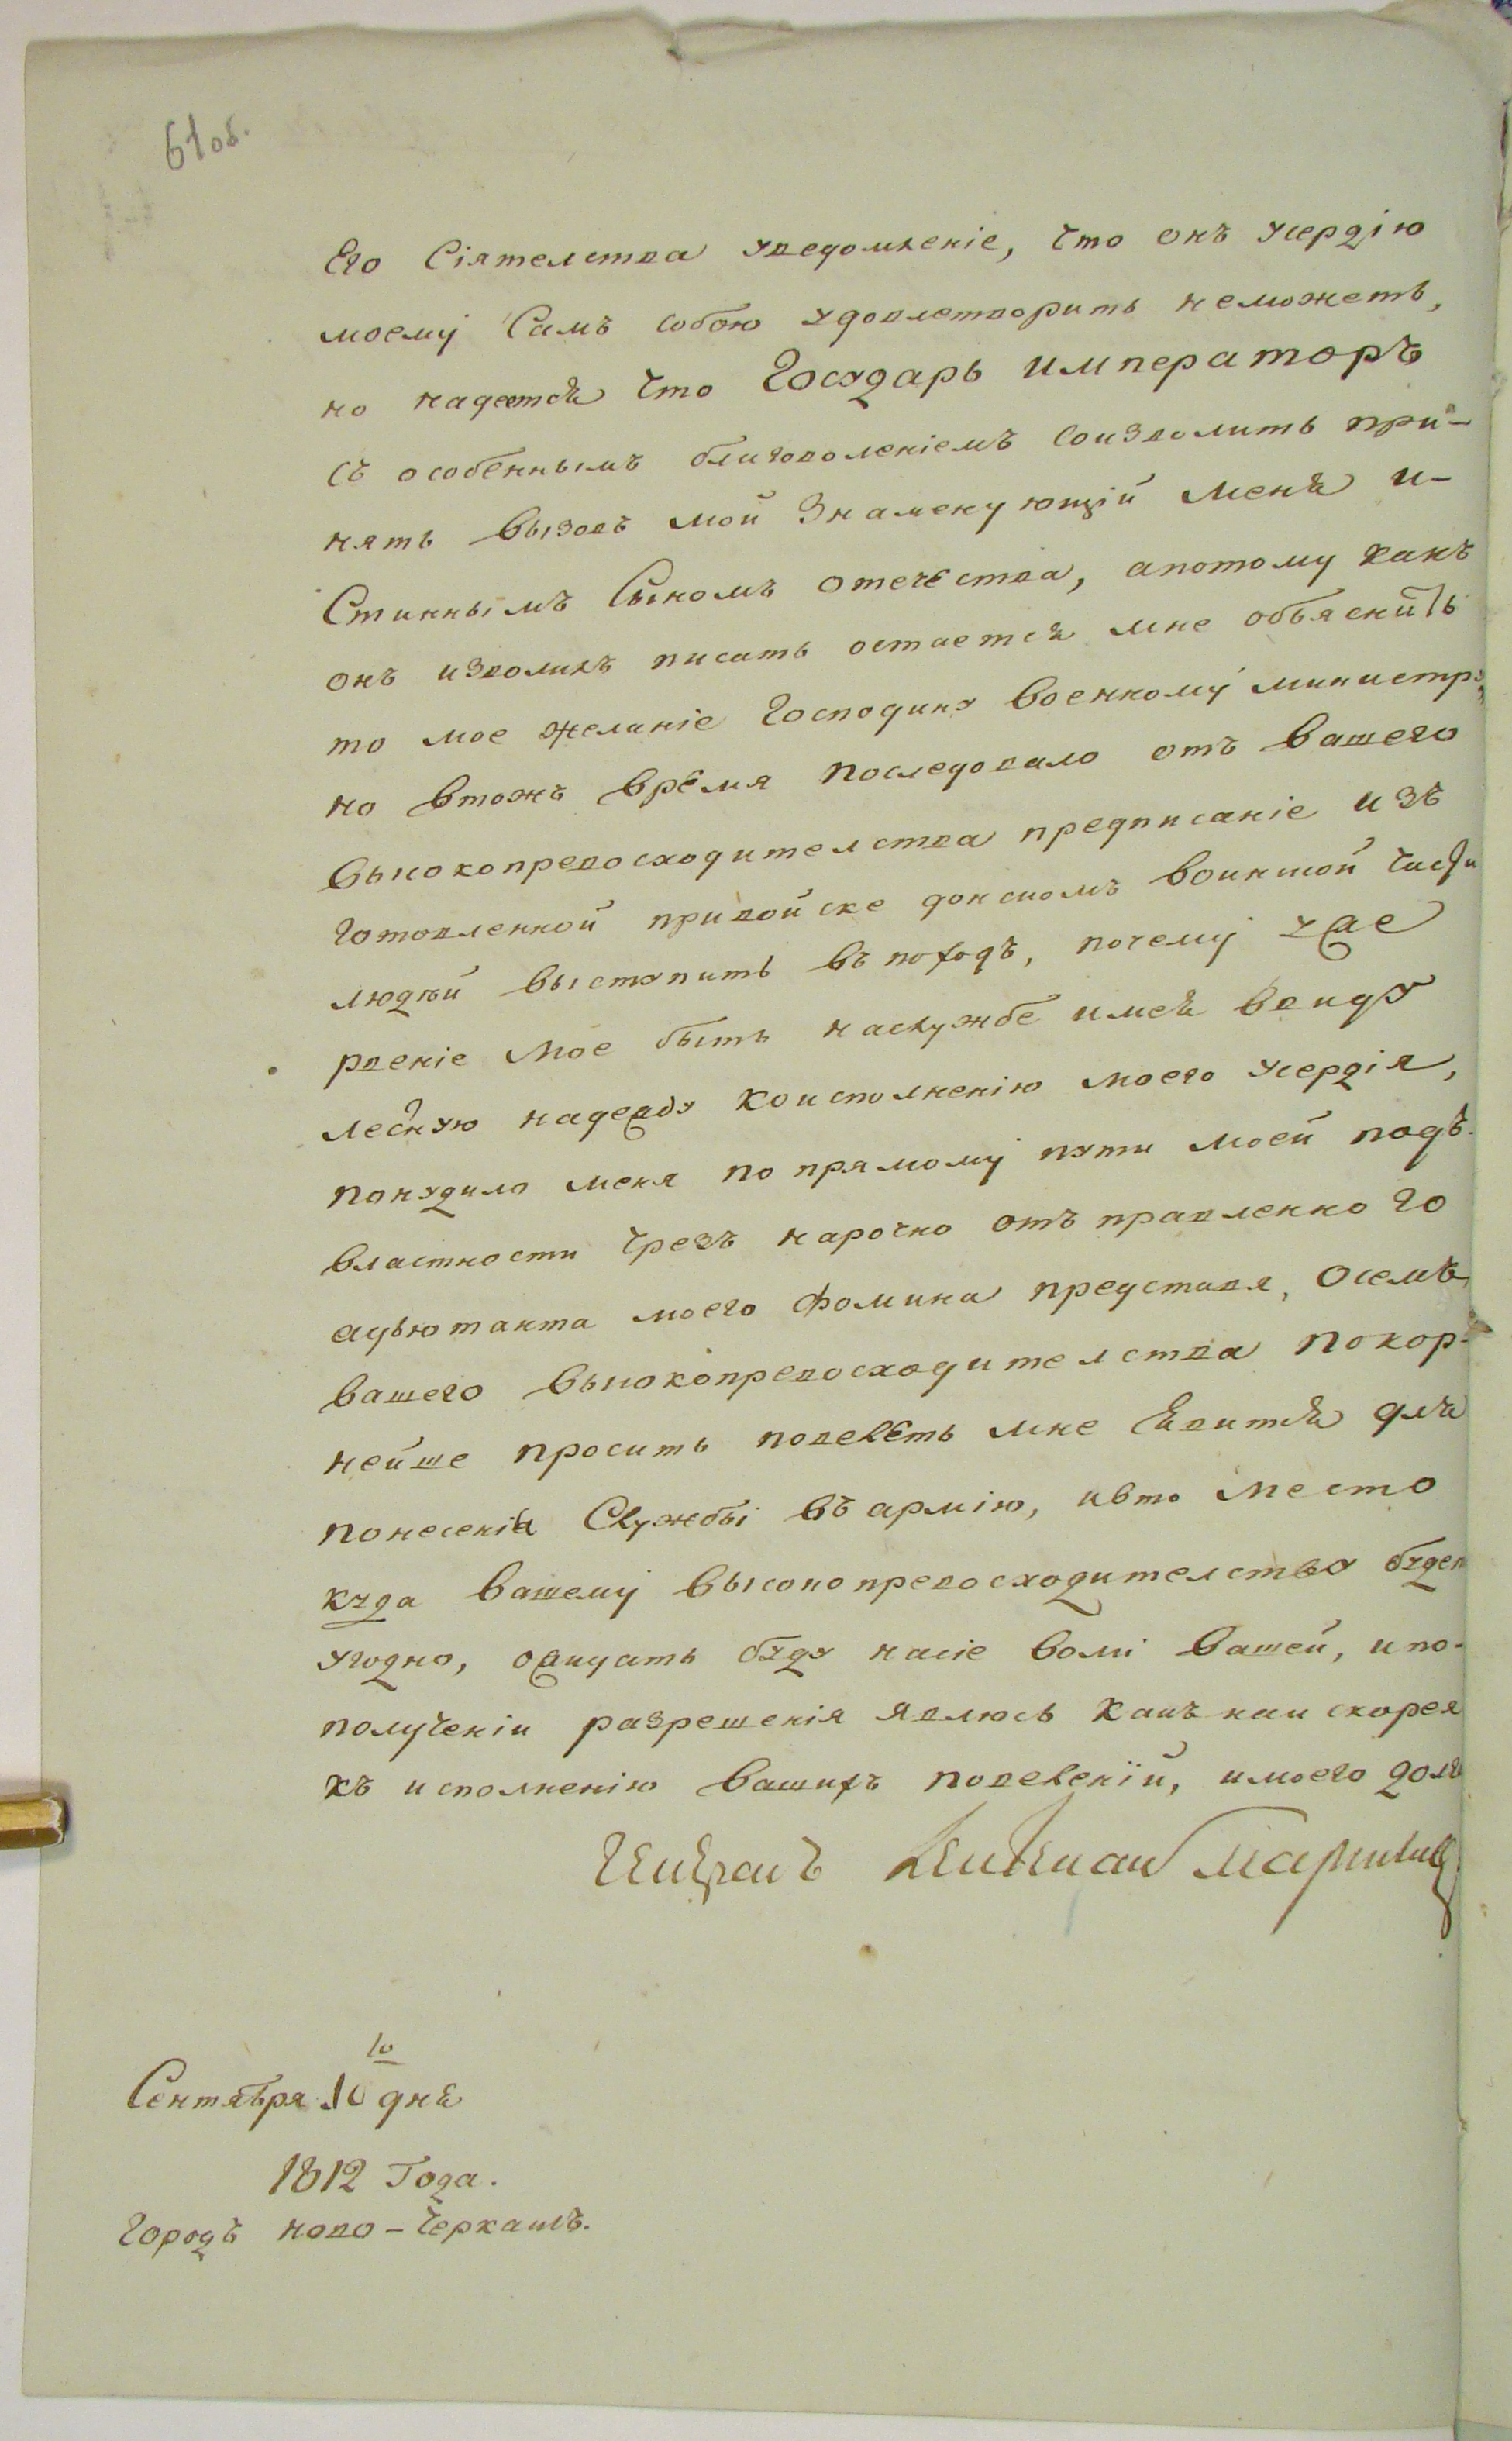 61 об.
Его Сіятелства уведомленіе, что онъ усердію
моему Самъ собою удовлетворить неможетъ,
но надеется что Государь императоръ
съ особеннымъ благоволеніемъ соизволитъ при-
нять вызовъ мой Знаменующій меня и-
Стиннымъ Сыномъ отечества, апотому какъ
онъ изволилъ писать остается мне объяснить
то мое желаніе Господину военному министру,
но втожъ время последовало отъ вашего
высокопревосходителства предписаніе изъ
готовленной привойске донскомъ воинской части
людей выступить въ походъ, почему усе
рдеціе мое быть наслужбе имея ввиду
лесную надежду коисполненію моего усердія,
понудило меня по прямому пути моей подъ-
властности чрезъ нарочно отъправленного
адъютанта моего Фомина представя, осемъ
вашего высокопревосходителства покор-
нейше просить повелеть мне явится для
понесенія Службы въ армію, ивто место
куда вашему высокопревосходителству будет
угодно, ожидать буду насіе воли вашей, ипо-
полученіи разрешенія явлюсь какъ наискорея
къ исполненію вашихъ повеленій, имоего долга
Сентября 10 дня
10
1812 Года.
Городъ ново-Черкаскъ.